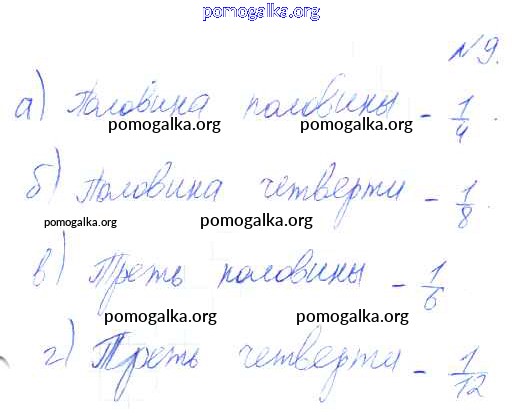 pomogalka.org
№ 9.
а) Половина половины - 1/4.
pomogalka.org pomogalka.org
б) Половина четверти - 1/8.
pomogalka.org pomogalka.org
в) Треть половины - 1/6
pomogalka.org pomogalka.org
г) Треть четверти - 1/12
pomogalka.org pomogalka.org